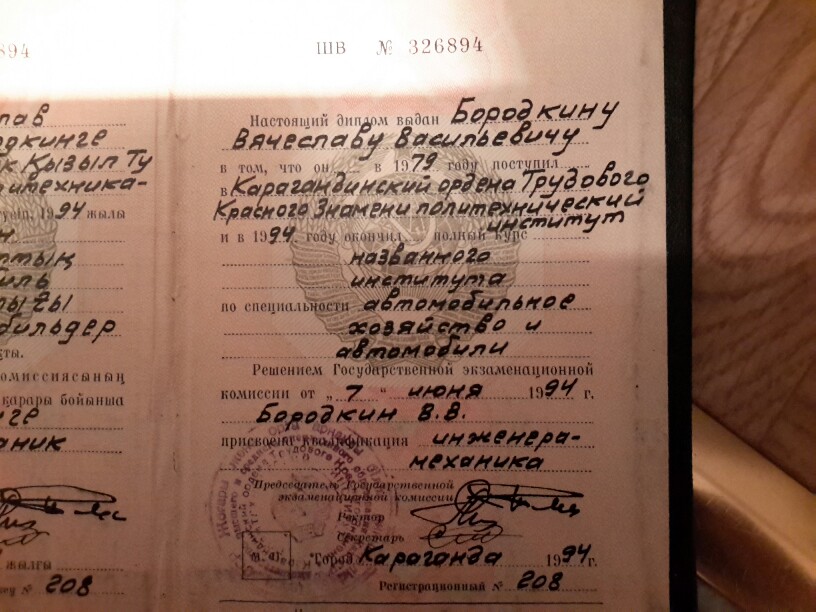 894
дкинге
к Қызыл Ту
литехника-
1994 жылы
н
птық
иль
лығы
бильдер
ты.
омиссиясының
қарары бойынша
нге
аник
жылғы
№ 208
ШВ № 326894
Настоящий диплом выдан Бородкину
Вячеславу Васильевичу
в том, что он в 1979 году поступил
в Карагандинский ордена Трудового
Красного Знамени политехнический
институт
и в 1994 году окончил полный курс
названного
института
по специальности автомобильное
хозяйство и
автомобили
Решением Государственной экзаменационной
комиссии от „7“ июня 1994 г.
Бородкин В.В.
присвоена квалификация инженера-
механика
Председатель Государственной
экзаменационной комиссии
Ректор
Секретарь
М. П.
Город Караганда 1994 г.
Регистрационный № 208